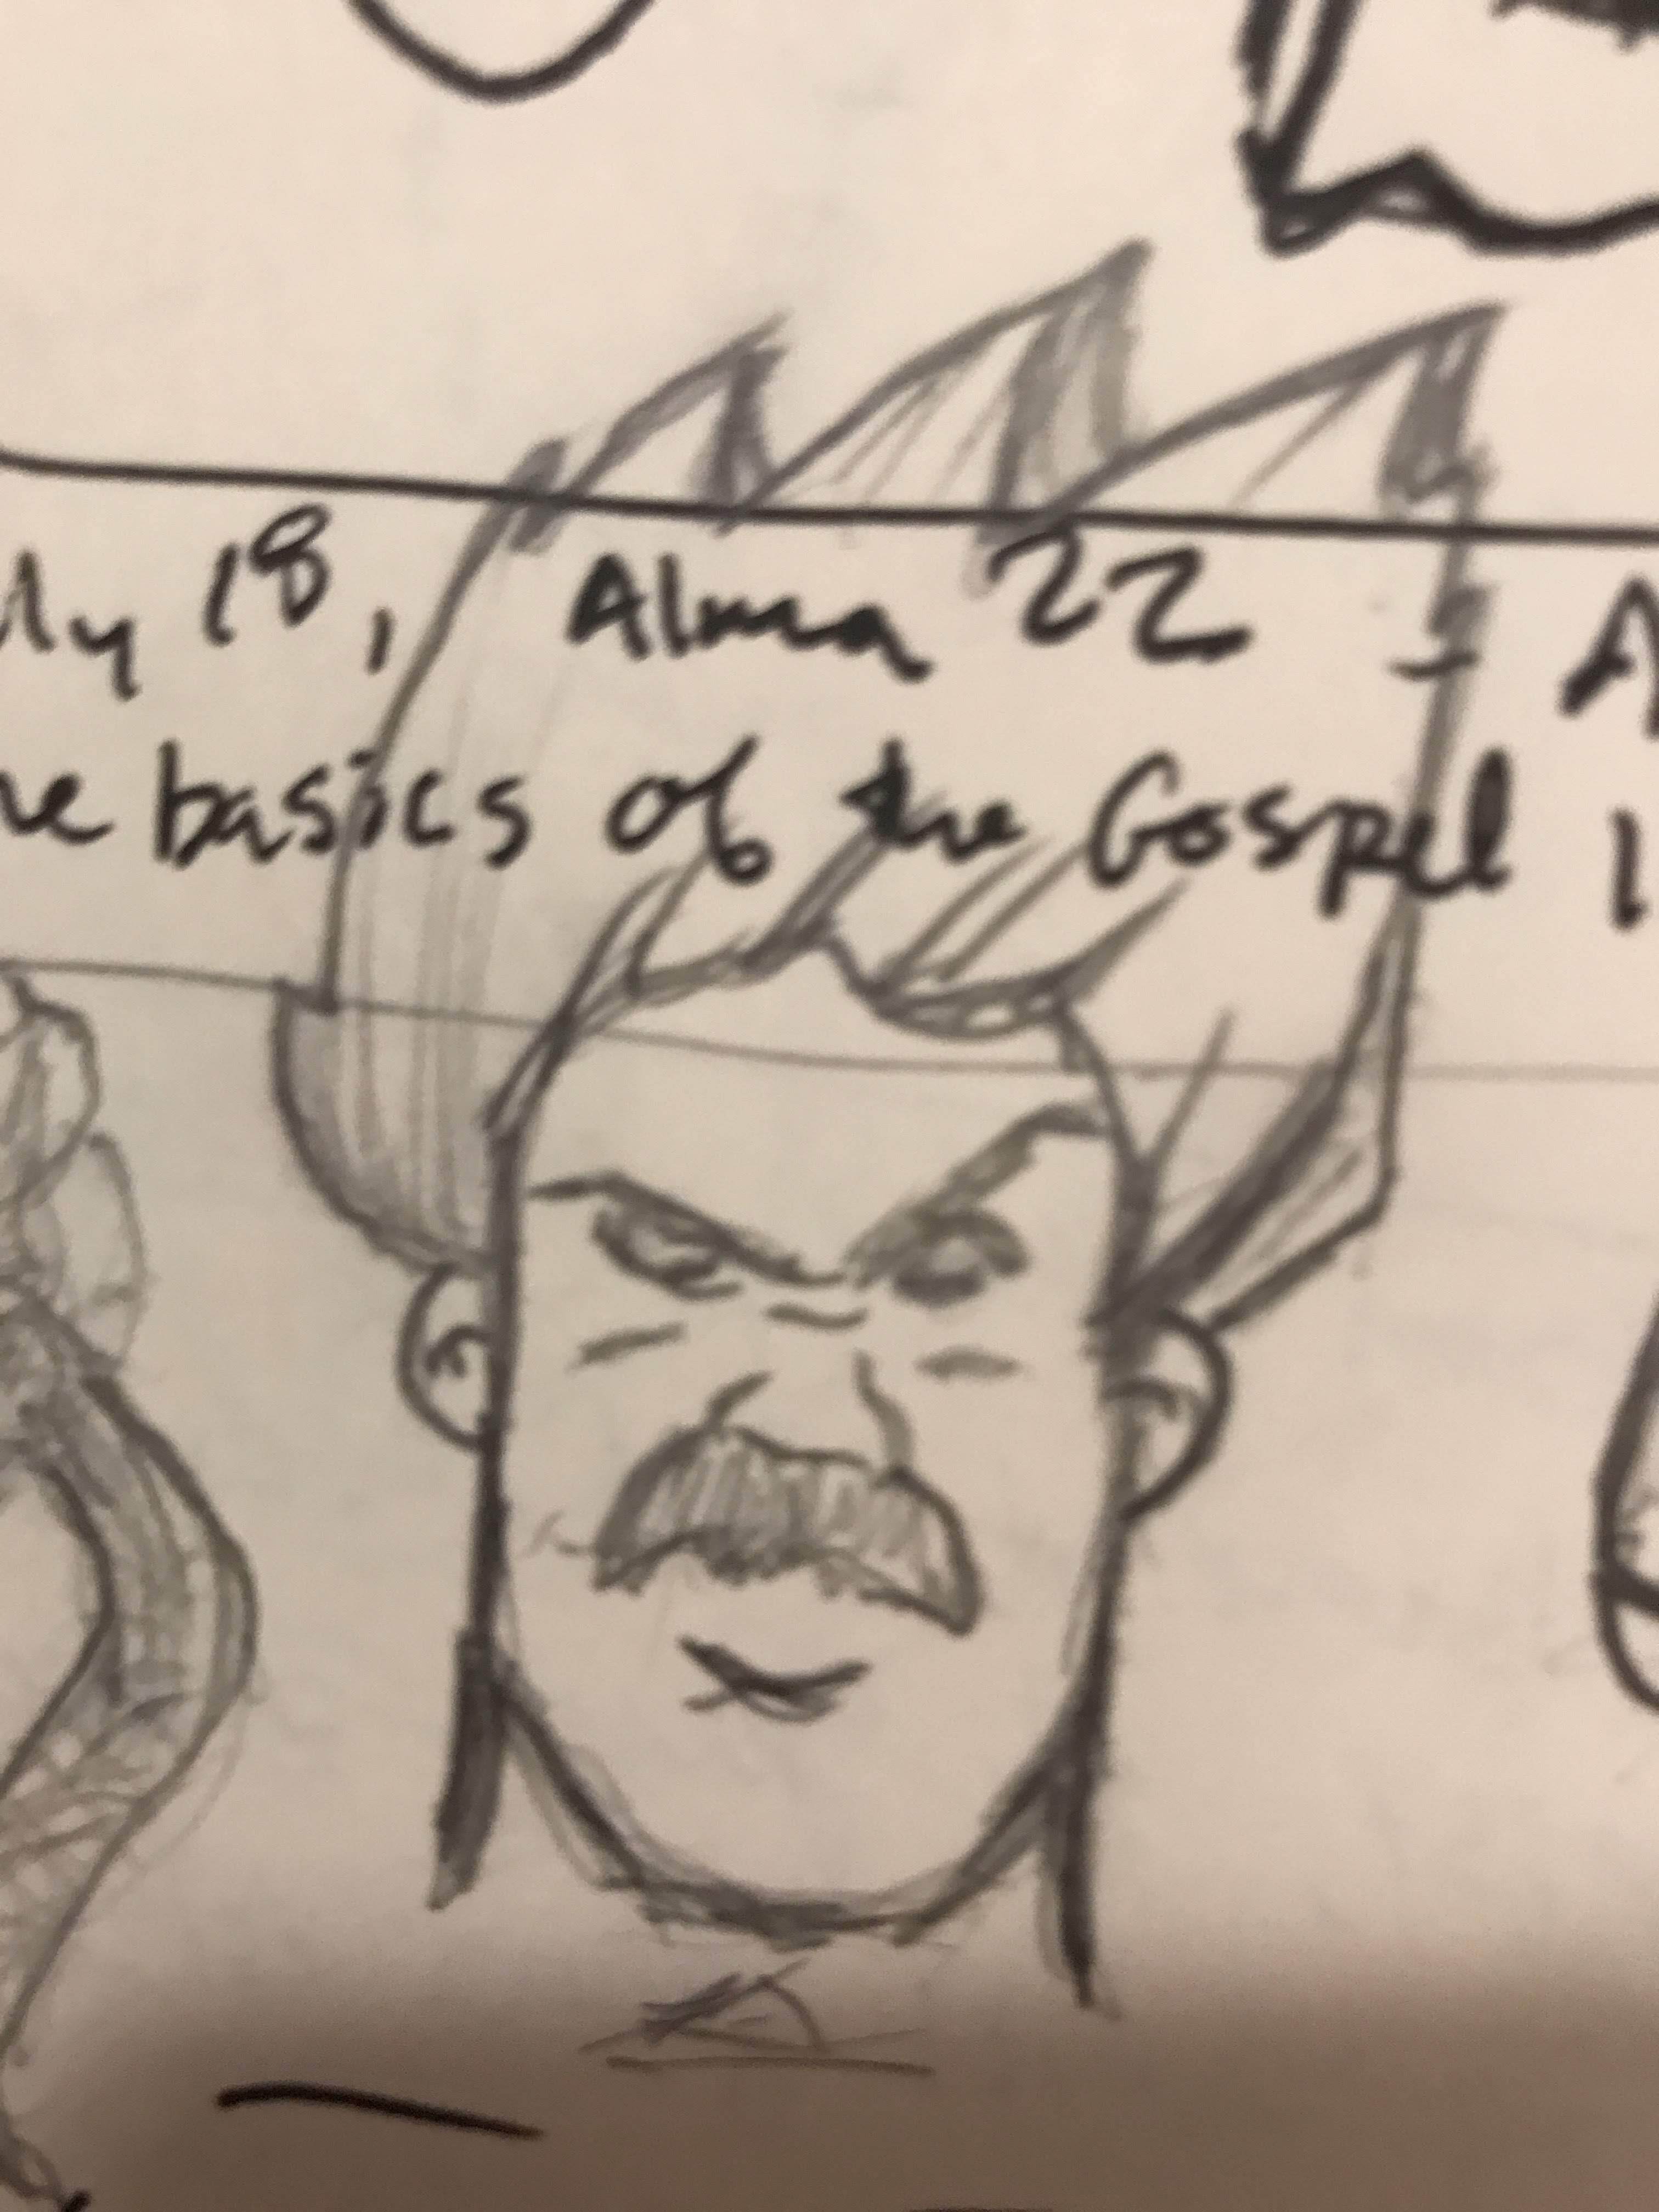 ly 18, Alma 22 - A
he basics of the Gospel